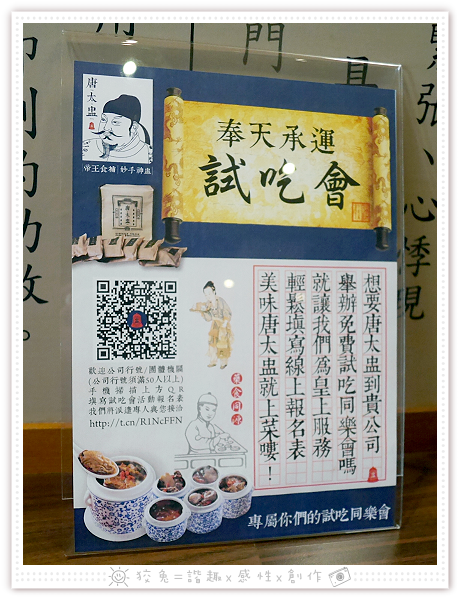 唐太盅
帝王食補 妙手神盅
奉天承運
試吃會
唐太盅
想要唐太盅到貴公司
舉辦免費試吃同樂會嗎
就讓我們為皇上服務
輕鬆填寫線上報名表
美味唐太盅就上菜嘍！
藥食同源
歡迎公司行號/團體機關
(公司行號須滿50人以上)
手機掃描上方QR
填寫試吃會活動報名表
我們將派遣專人與您接洽
http://t.cn/R1NcFFN
專屬你們的試吃同樂會
張、心悸現
門
狡兔=諧趣x感性x創作